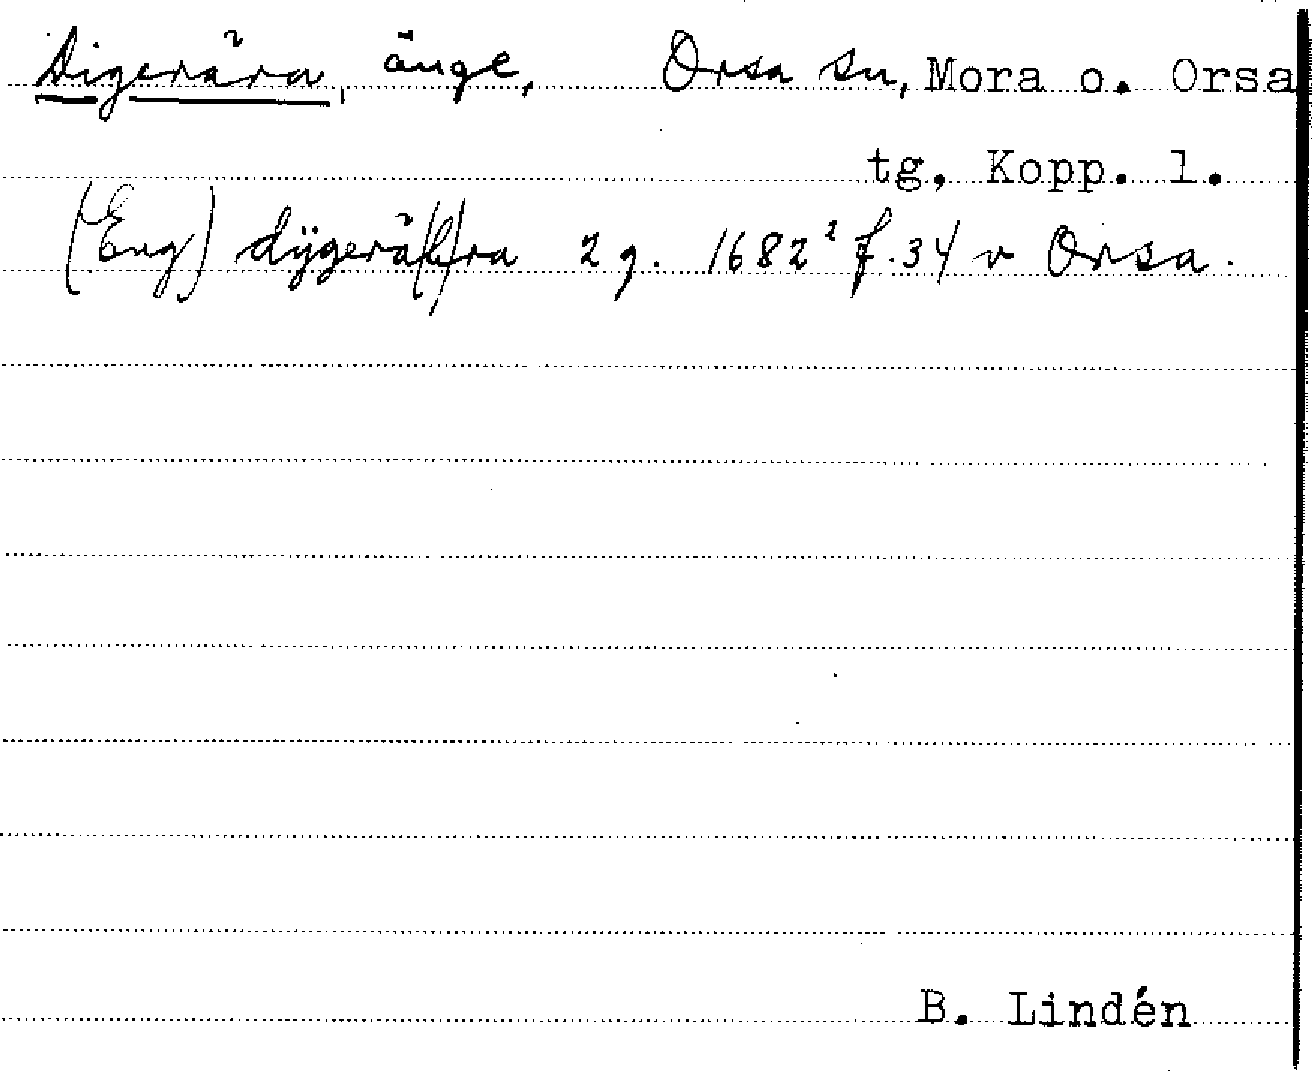 Digerära, änge, Orsa sn, Mora o. Orsa
tg, Kopp. l.
(Eng) dÿgerä(l)ra 2 g. 1682² f. 34 v Orsa.
B. Lindén